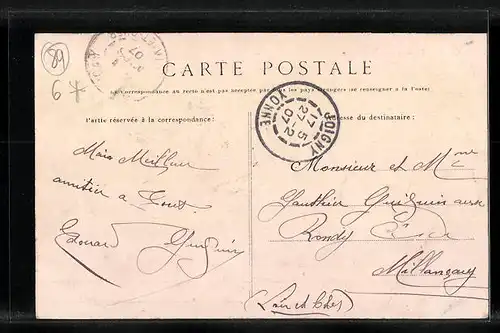 89
6 *
CARTE POSTALE
La correspondance au recto n'est pas acceptée par tous les pays étrangers (se renseigner à la Poste)
Partie réservée à la correspondance:
Adresse du destinataire:
JOIGNY
17-5
27-2
07
YONNE
Mais Meilleur
amitier a Tout
Edouard Guiguin
Monsieur et Mme
Gauthier Guiguin aux
Rondy
Millançay
(Loir et Cher)